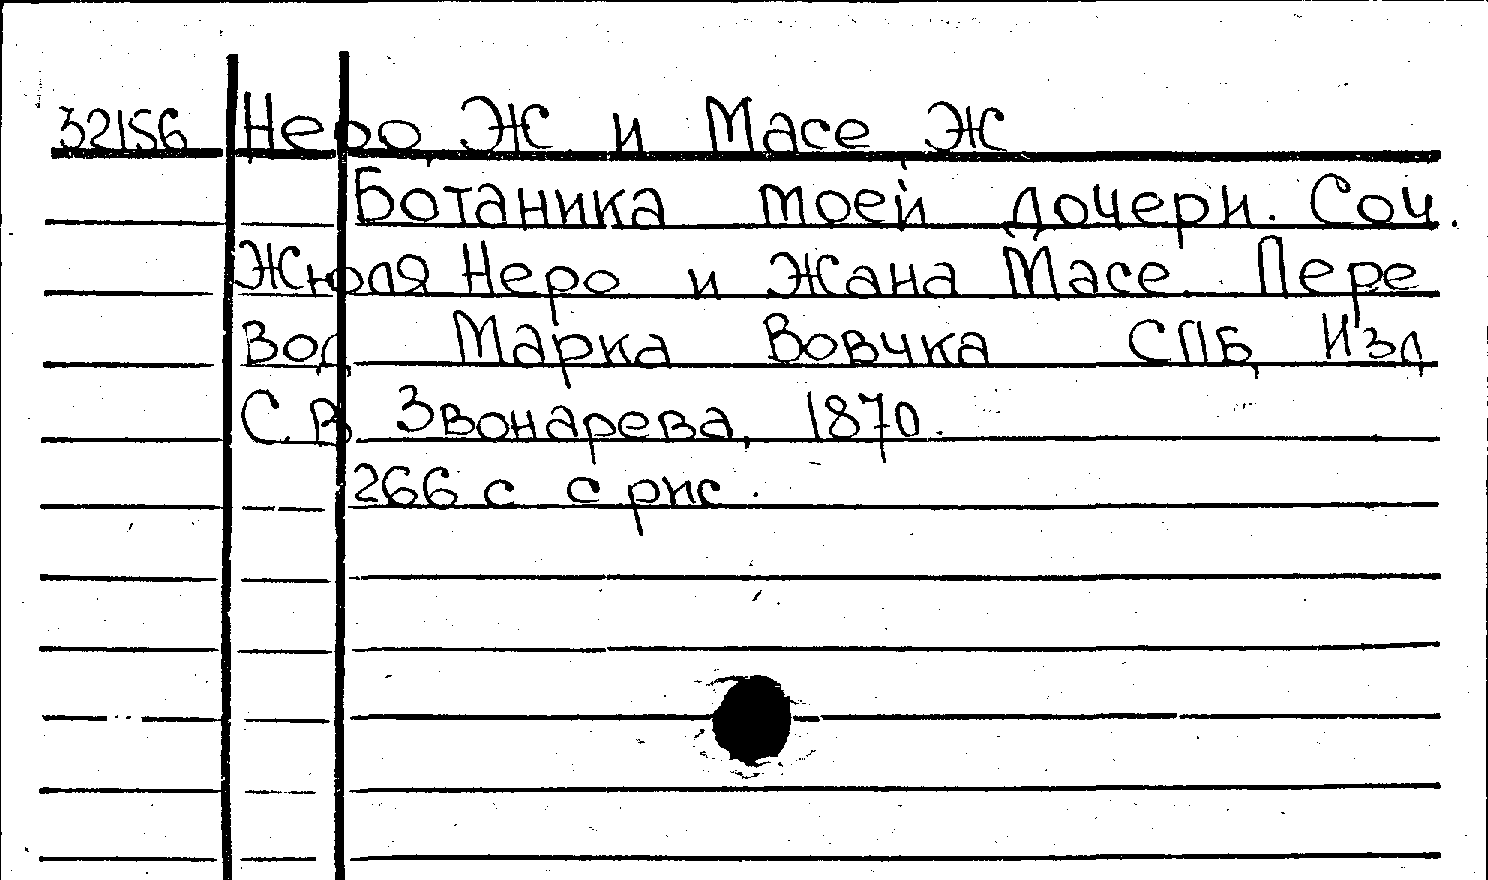 32156 Неро, Ж. и Масе, Ж.
Ботаника моей дочери. Соч.
Жюля Неро и Жана Масе. Пере
вод Марка Вовчка СПБ, Изд.
С.В. Звонарева, 1870.
266 с. с рис.